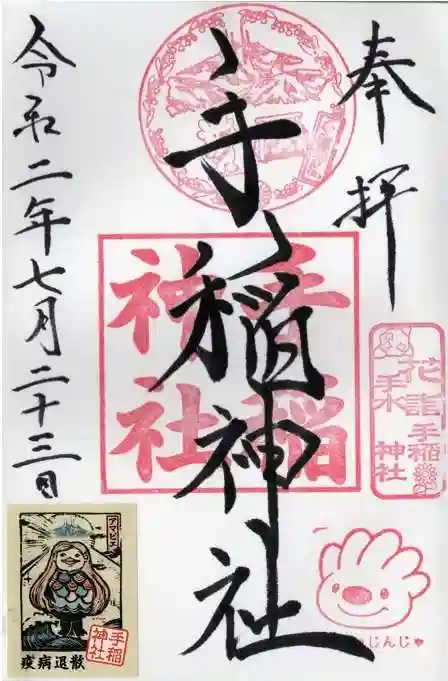 奉拝
手稲神社
令和二年七月二十三日
手稲
神社
花詣
手水
手稲
神社
じんじ
アマビエ
手稲
神社
疫病退散